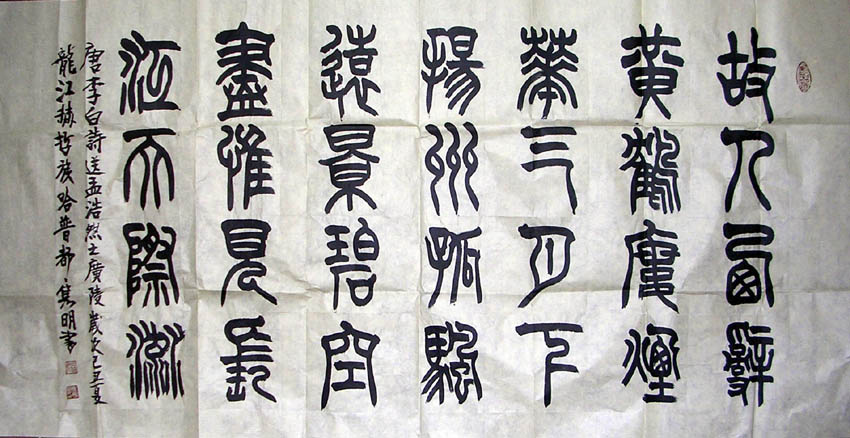 故人西辭
黃鶴廔煙
華三月下
揚州孤颿
遠景碧空
盡惟見長
江天際流
唐李白詩送孟浩然之廣陵歲次己丑夏
龍江赫哲族哈普都·隽明書